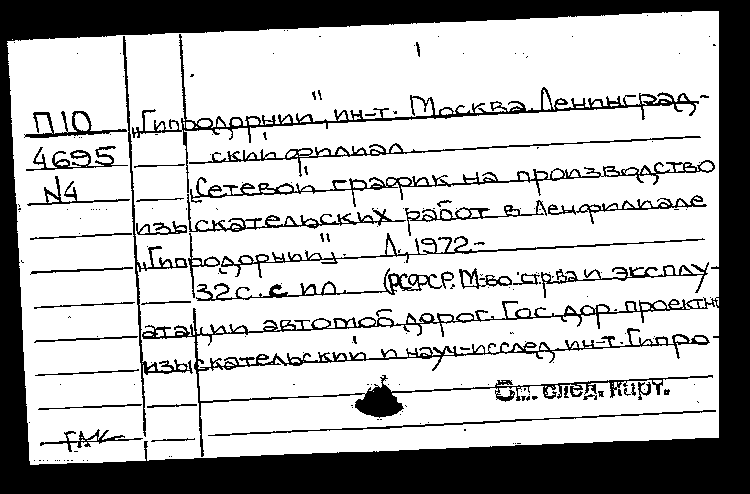 П10
4695
N4
„Гипродорнии", ин-т. Москва. Ленинград-
ский филиал.
Сетевой график на производство
изыскательских работ в Ленфилиале
„Гипродорнии". Л., 1972-
32 с. с ил. (РСФСР. М-во стр-ва и эксплу-
атации автомоб. дорог. Гос. дор. проектно
изыскательский и науч-исслед. ин-т. Гипро-
См. след. карт.